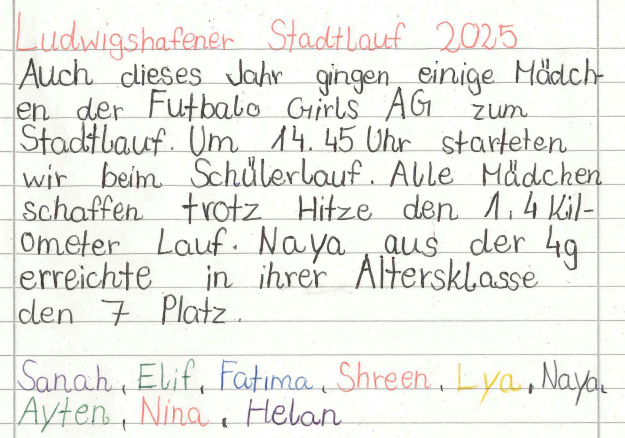 Ludwigshafener Stadtlauf 2025
Auch dieses Jahr gingen einige Mädch-
en der Futbalo Girls AG zum
Stadtlauf. Um 14.45 Uhr starteten
wir beim Schülerlauf. Alle Mädchen
schaffen trotz Hitze den 1,4 Kil-
ometer Lauf. Naya aus der 4g
erreichte in ihrer Altersklasse
den 7 Platz.
Sanah, Elif, Fatima, Shreen, Lya, Naya,
Ayten, Nina, Helan